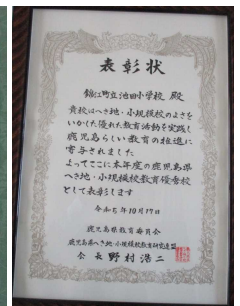 表彰状
錦江町立池田小学校 殿
貴校はへき地・小規模校のよさを
いかした優れた教育活動を実践し
鹿児島らしい教育の推進に
寄与されました
よってここに本年度の鹿児島県
へき地・小規模校教育優秀校
として表彰します
令和5年10月17日
鹿児島県教育委員会
鹿児島県へき地・小規模校教育研究連盟
会長 野村浩二